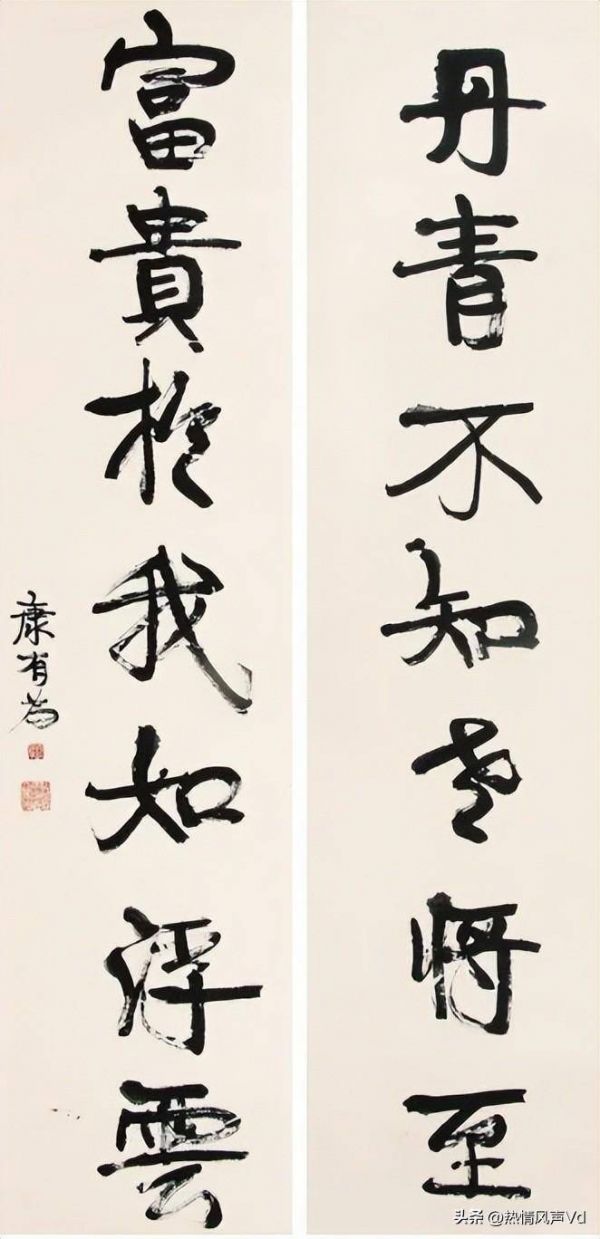 丹青不知老将至
富貴於我如浮雲
康有为
头条 @热情风声Vd